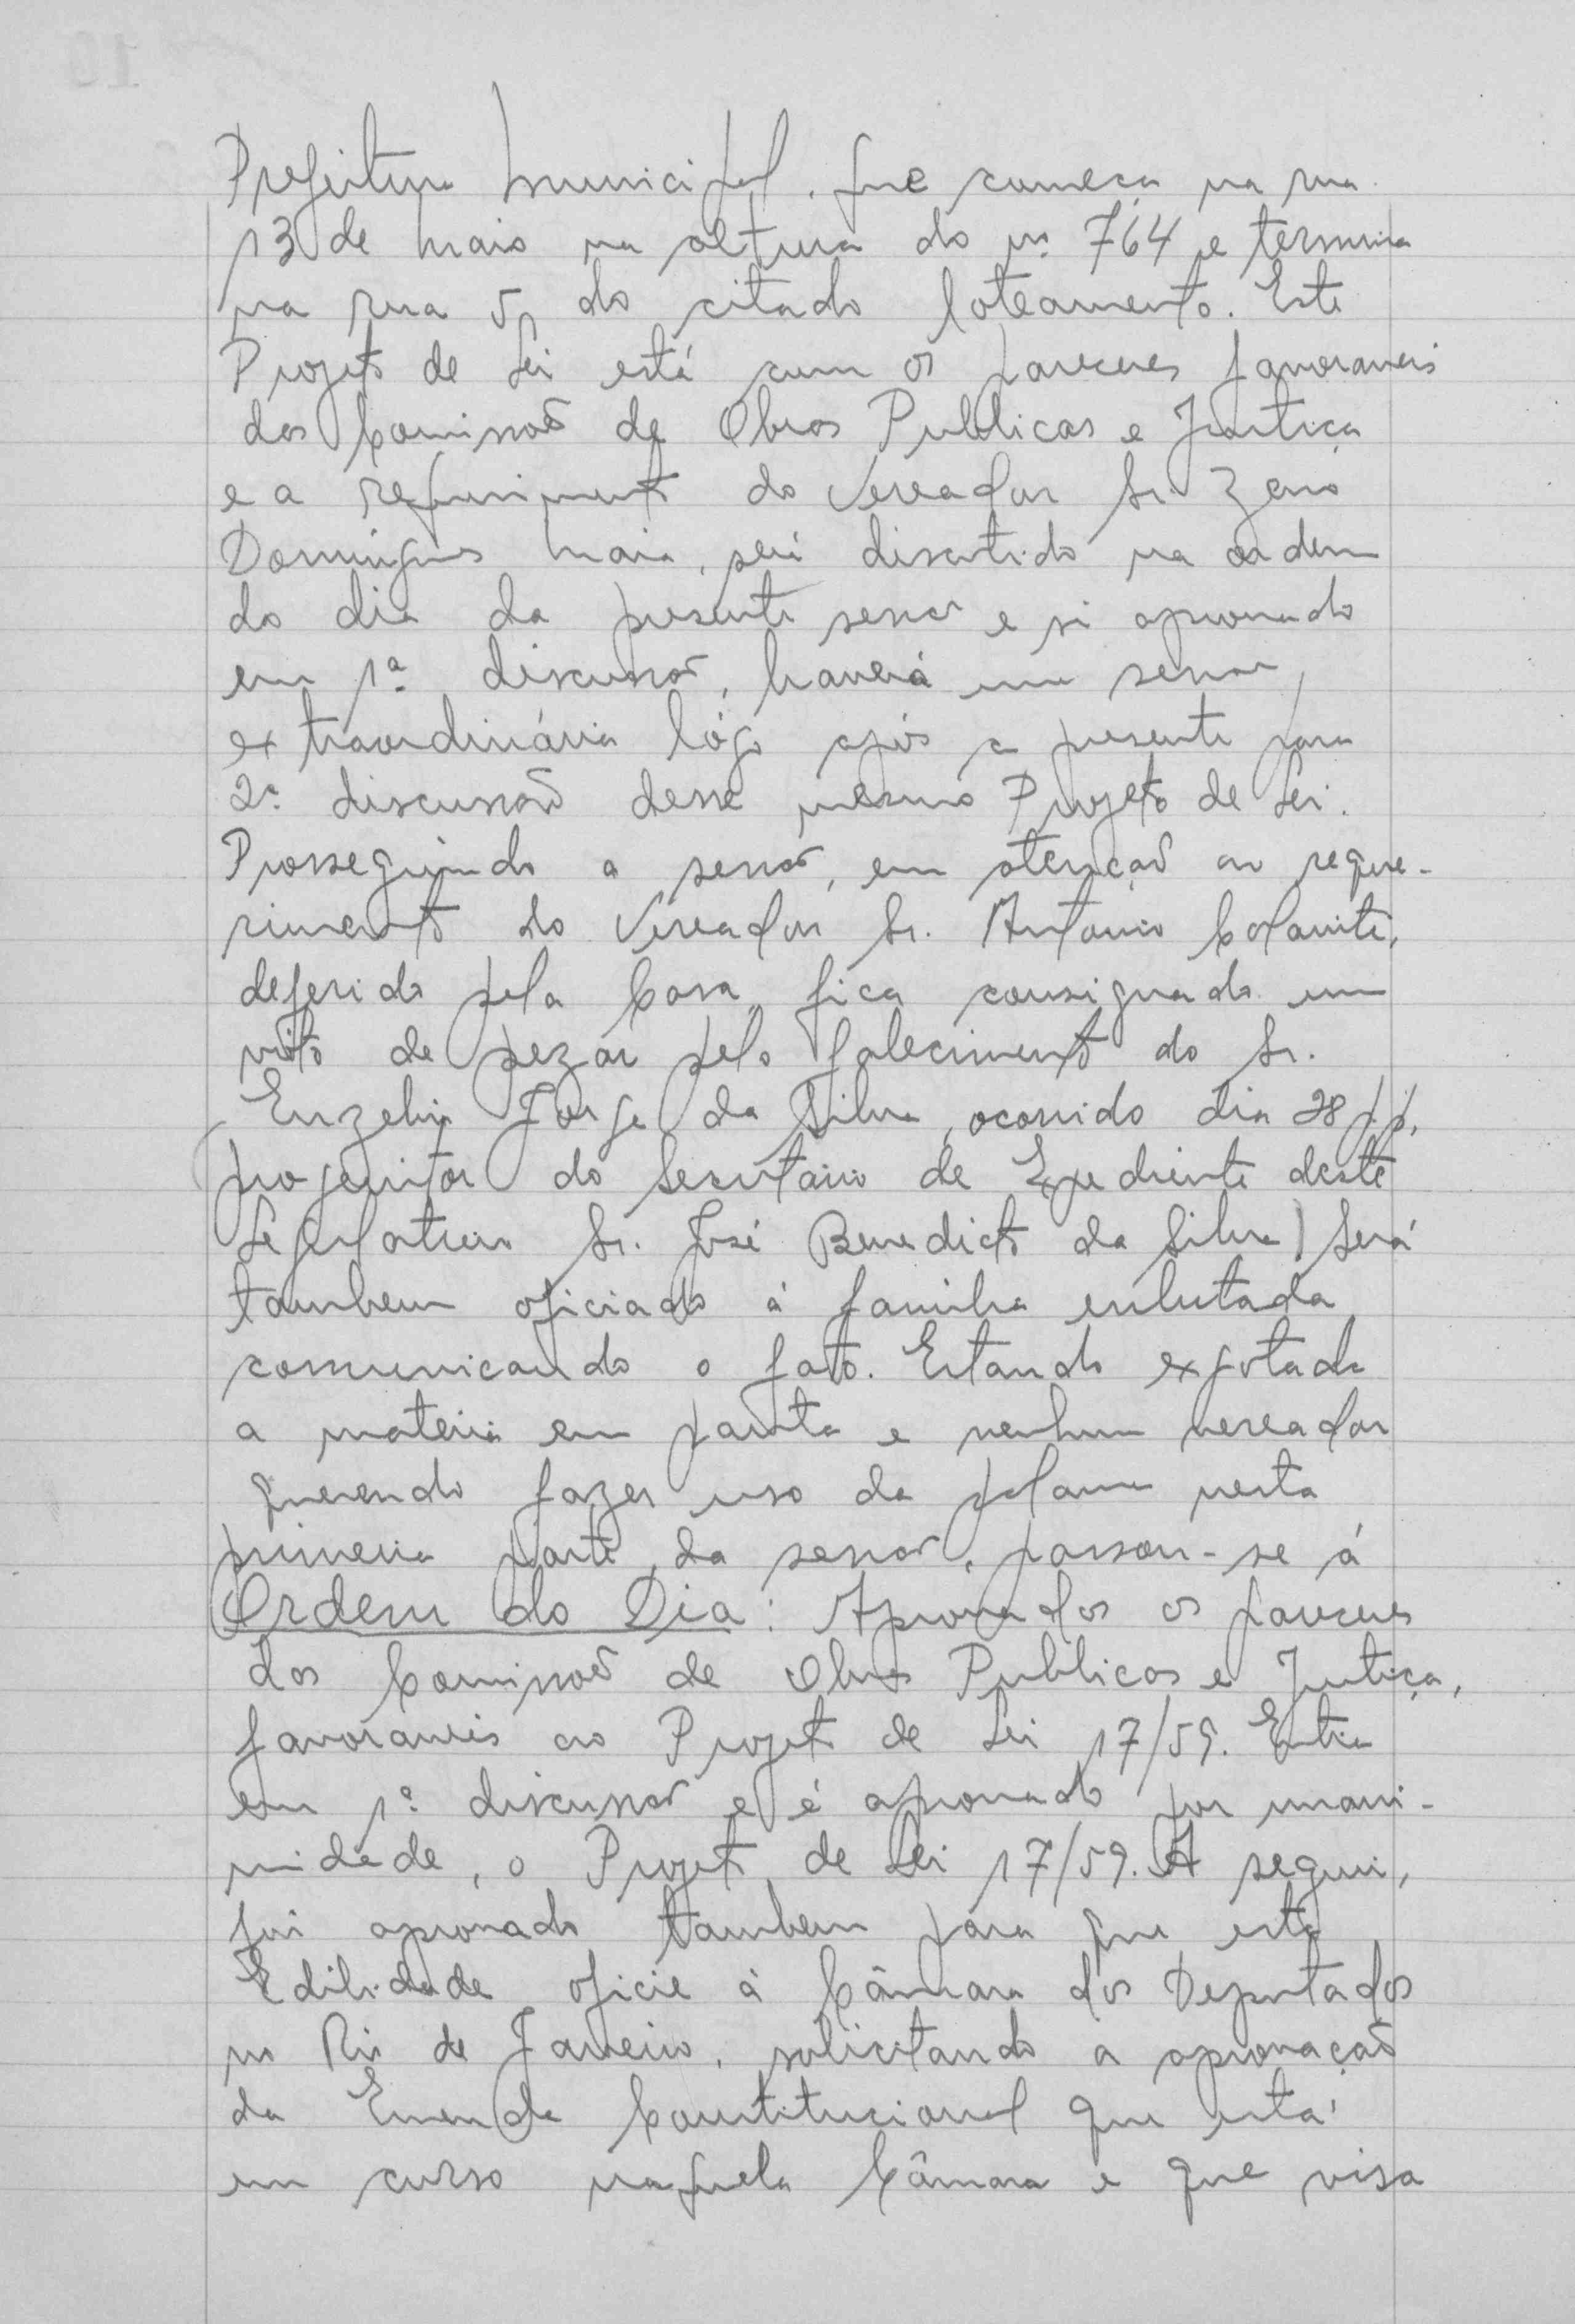 Prefeitura Municipal, que começa na rua
13 de Maio na altura do nº 764 e termina
na rua 5, do citado loteamento. Este
Projeto de Lei está com os pareceres favoraveis
das Comissoẽs de Obras Publicas e Justiça
e a requerimento do Vereador Sr. Zeno
Domingues Maia, será discutido na ordem
do dia da presente sessaõ e si aprovado
em 1ª discussaõ, haverá uma sessaõ
extraordinária lógo após a presente para
2ª discussaõ desse mesmo Projeto de Lei.
Prosseguindo a sessaõ, em atençaõ ao reque-
rimento do Vereador Sr. Antonio Colamite,
deferido pela Casa, fica consignado um
voto de pezar pelo falecimento do Sr.
Euzebio Jorge da Silva, ocorrido dia 28 p.p.
(progenitor do Secretario de Expediente deste
Legislativo Sr. José Benedicto da Silva) Será
tambem oficiado á familia enlutada
comunicando o fato. Estando exgotada
a materia em pauta e nenhum vereador
querendo fazer uso da palavra nesta
primeira parte da sessaõ, passou-se á
Ordem do Dia: Aprovados os pareceres
das Comissoẽs de Obras Publicas e Justiça,
favoraveis ao Projeto de Lei 17/59. Entra
em 1ª discussaõ e é aprovado por unani-
midade, o Projeto de Lei 17/59. A seguir,
foi aprovado tambem para que esta
Edilidade oficie á Câmara dos Deputados
no Rio de Janeiro, solicitando a aprovaçaõ
da Emenda Constitucional que está
em curso naquela Câmara e que visa